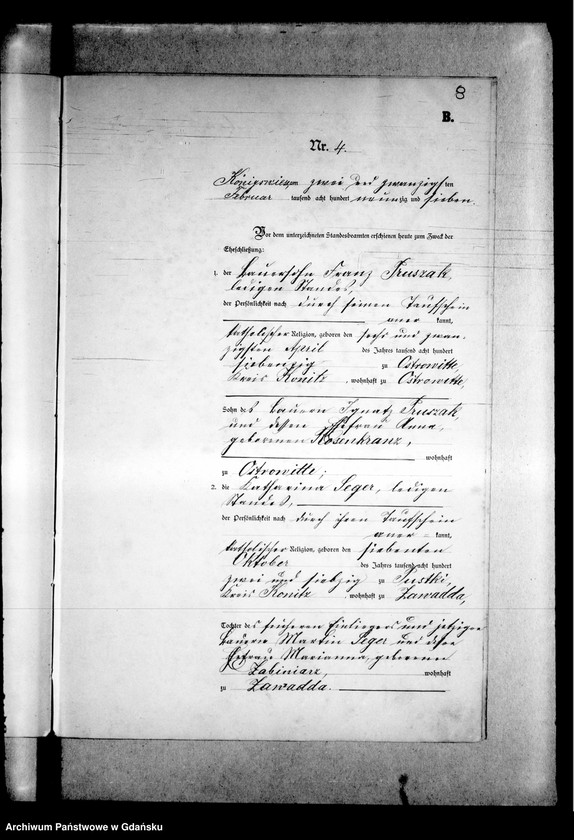 8
B.
Nr. 4.
am zwei und zwanzigsten
Februar tausend acht hundert neunzig und sieben.
Vor dem unterzeichneten Standesbeamten erschienen heute zum Zweck der
Eheschließung:
1. der Bauersohn Franz Pruszak,
ledigen Standes,
der Persönlichkeit nach durch seinen Taufschein
aner kannt,
katholischer Religion, geboren den sechs und zwan-
zigsten April des Jahres tausend acht hundert
siebenzig zu Ostrowitte,
Kreis Konitz, wohnhaft zu Ostrowitte,
Sohn des Bauern Ignatz Pruszak,
und dessen Ehefrau Anna,
geborenen Rosenkranz,
wohnhaft
zu Ostrowitte;
2. die Katharina Seger, ledigen
Standes,
der Persönlichkeit nach durch ihren Taufschein
aner = kannt,
katholischer Religion, geboren den siebenten
Oktober des Jahres tausend acht hundert
zwei und siebzig zu
Kreis Konitz, wohnhaft zu Zawadda,
Tochter des früheren Einliegers und jetzigen
Bauern Martin Seger und dessen
Ehefrau Marianna, geborenen
Zabiniarz, wohnhaft
zu Zawadda.
Archiwum Państwowe w Gdańsku